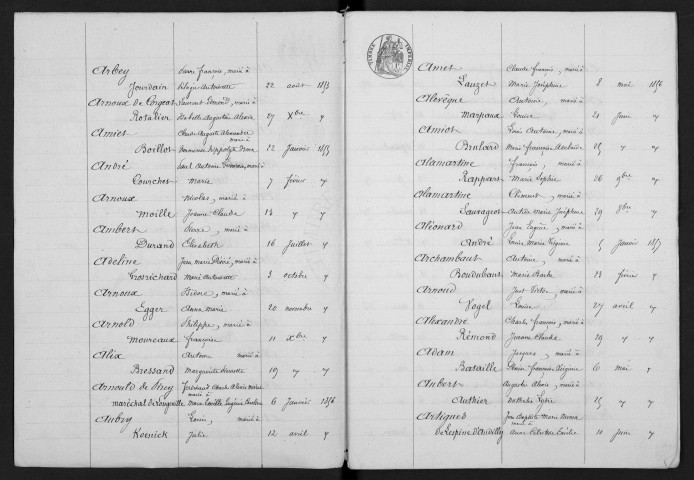 Arbey Pierre François, marié à
Jourdain 22 août 1853
Arnoux de Longeot Edmond, marié à
Rotalier Isabelle Augustine Alexie 27 Xbre 4
Amiet Claude Auguste Alexandre
marié à
Boillot Hippolyte 22 Janvier 1855
André Paul Antoine marié à
Courchet Marie 7 février 4
Arnoux Nicolas, marié à
Moille Jeanne Claude 14 4 4
Ambert marié à
Durand Elisabeth 16 Juillet 4
Adeline Jean Marie Désiré, marié à
Grosrichard Marie Antoinette 3 octobre 4
Arnoux Isidore, marié à
Egger Anna Marie 20 novembre 4
Arnold Philippe, marié à
Moureaux Françoise 11 Xbre 4
Alix Antoine marié à
Bressand Marguerite 19 4 4
Arnould de Charles Alexis
marié à
maréchal de Longeville Marie Camille Eugénie 6 Janvier 1856
Aubry Louis, marié à
Koenick Julie 12 avril 4
TIMBRE IMPERIAL
Amet Claude François, marié à
Lauzet Marie Joséphine 8 mai 1856
Alevêque Antoine, marié à
Marpaux Louise 21 Juin 4
Amiot Louis Antoine, marié à
Brulard Marie Françoise 25 4 4
Alamartine François, marié à
Rappart Marie Sophie 26 9bre 4
Alamartine Clément, marié à
Sauvageot Marie Joséphine 29 8bre 4
Aléonard Jean Eugène, marié à
André Louise Marie Virginie 5 Janvier 1857
Archambaut Antoine, marié à
Boudubaut Marie 23 février 4
Arnoud Just Victor, marié à
Vogel Louise 27 avril 4
Alexandre Charles François, marié à
Rémond Jeanne Claude 29 4 4
Adam Jacques, marié à
Bataille 6 mai 4
Aubert Auguste Alexis, marié à
Authier 25 4 4
Artigues Jean Baptiste Marie
marié à
de Lespine d'Andilly Anne 10 Juin 4